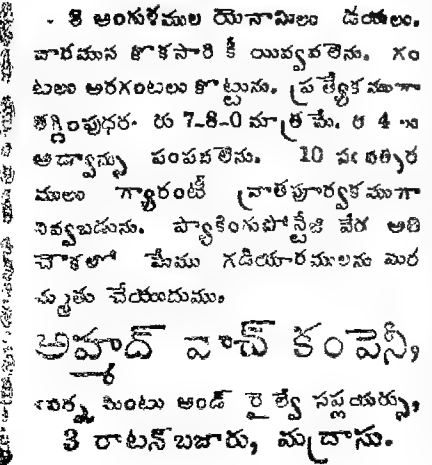 8 అంగుళముల యెనామిలు డయలు.
వారమున కొకసారి కీ యివ్వవలెను. గం
టలు అరగంటలు కొట్టును. ప్రత్యేకముగా
తగ్గింపుధర. రు 7-8-0 మాత్రమే. రు 4
అడ్వాన్సు పంపవలెను. 10 సంవత్సర
ములు గ్యారంటీ వ్రాతపూర్వకముగా
నివ్వబడును. ప్యాకింగుపోస్టేజి వేరు అతి
చౌకలో మేము గడియారములను మర
మ్మతు చేయుదుము.
అహ్మద్ వాచ్ కంపెనీ,
మింటు అండ్ రైల్వే సప్లయర్సు,
3 రాటన్ బజారు, మద్రాసు.